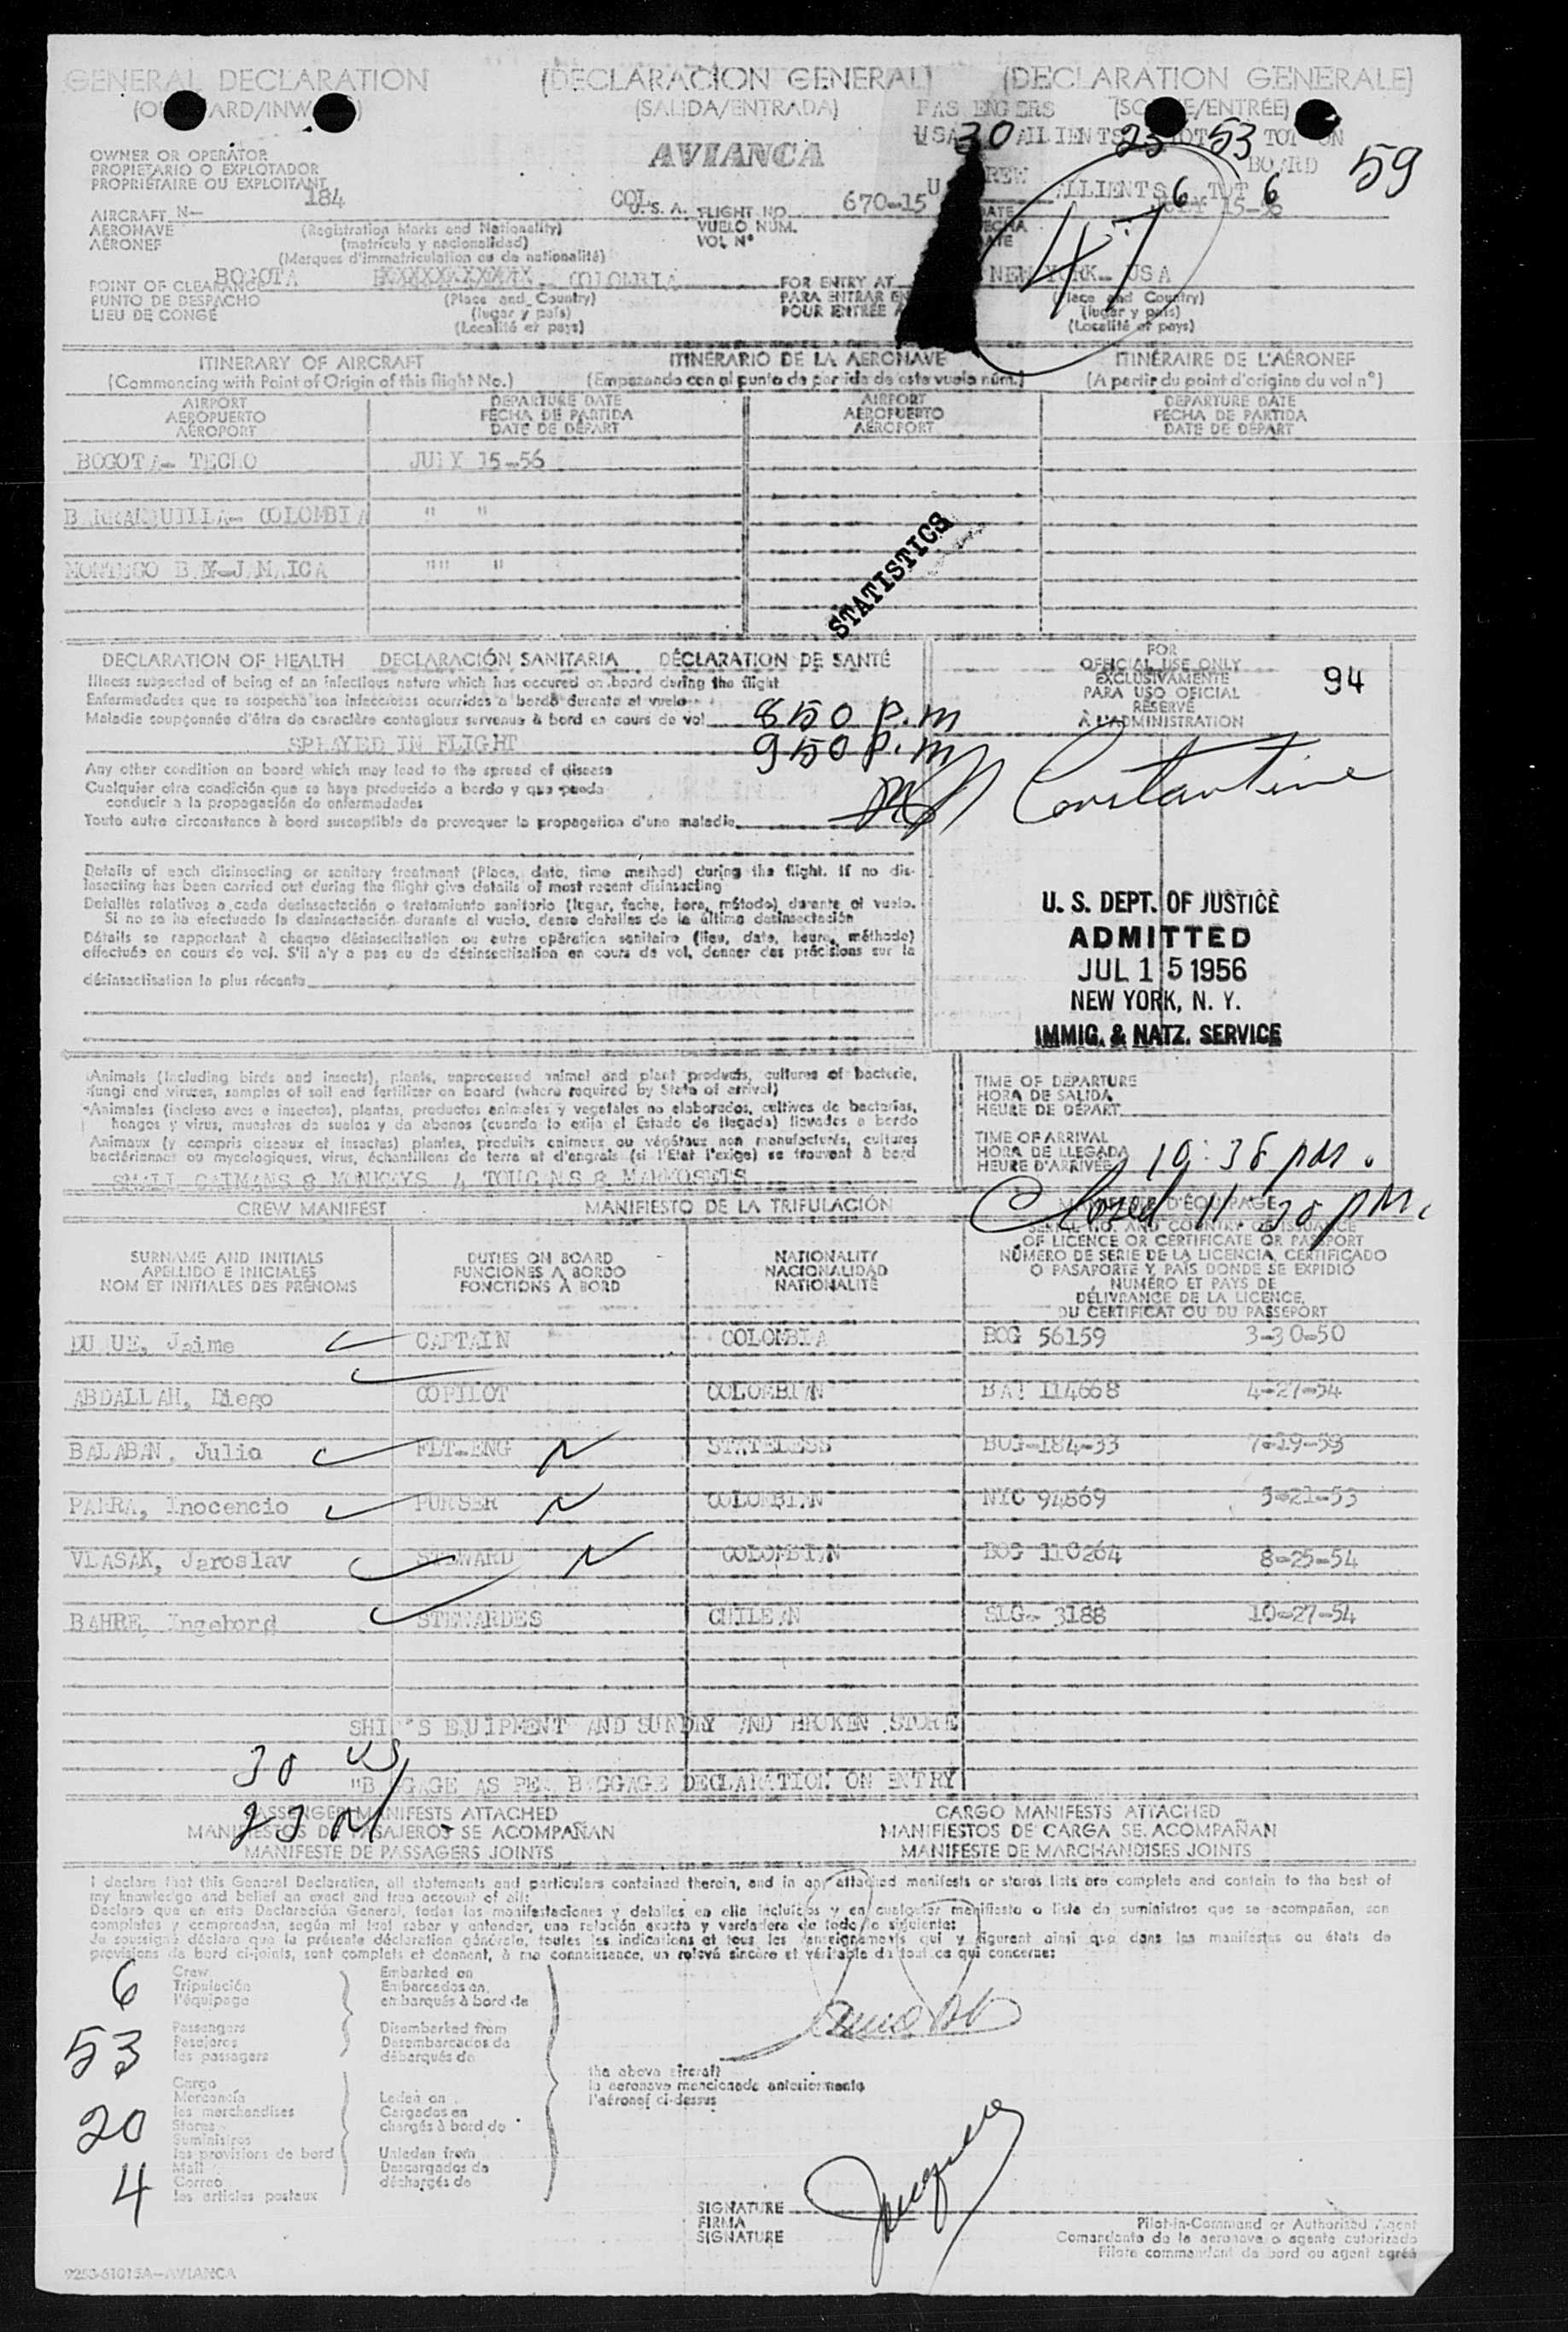 GENERAL DECLARATION (DECLARACION GENERAL) (DECLARATION GENERALE)
(SALIDA/ENTRADA)
USA 30 ALLIENTS 23 TOT 53 TOT ON
BOARD 59
OWNER OR OPERATOR
PROPIETARIO O EXPLOTADOR
PROPRIÉTAIRE OU EXPLOITANT
AVIANCA
ALLIENTS 6 TOT 6
AIRCRAFT N- 184 COL U. S. A. FLIGHT NO. 670-15
AERONAVE (Registration Marks and Nationality) VUELO NÚM.
AÉRONEF (matrícula y nacionalidad) VOL Nº
(Marques d'immatriculation ou de nationalité)
47
POINT OF CLEARANCE BOGOTA COLOMBIA FOR ENTRY AT NEW YORK- USA
PUNTO DE DESPACHO (Place and Country) PARA ENTRAR EN (Place and Country)
LIEU DE CONGÉ (lugar y país) POUR ENTRÉE A (lugar y país)
(Localité et pays) (Localité et pays)
ITINERARY OF AIRCRAFT ITINERARIO DE LA AERONAVE ITINÉRAIRE DE L'AÉRONEF
(Commencing with Point of Origin of this flight No.) (Empezando con el punto de partida de este vuelo núm.) (A partir du point d'origine du vol nº)
AIRPORT DEPARTURE DATE AIRPORT DEPARTURE DATE
AEROPUERTO FECHA DE PARTIDA AEROPUERTO FECHA DE PARTIDA
AÉROPORT DATE DE DÉPART AÉROPORT DATE DE DÉPART
BOGOTA- TECHO JULY 15-56
BARRANQUILLA- COLOMBIA " "
MONTEGO BAY-JAMAICA "" "
STATISTICS
DECLARATION OF HEALTH DECLARACIÓN SANITARIA DÉCLARATION DE SANTÉ
Illness suspected of being of an infectious nature which has occured on board during the flight
Enfermedades que se sospecha son infecciosas ocurridas a bordo durante el vuelo
Maladie soupçonnée d'être de caractère contagieux survenue à bord en cours de vol
850 p.m
SPRAYED IN FLIGHT 950 p.m
Any other condition on board which may lead to the spread of disease
Cualquier otra condición que se haya producido a bordo y que pueda
conducir a la propagación de enfermedades
Toute autre circonstance à bord susceptible de provoquer la propagation d'une maladie
FOR
OFFICIAL USE ONLY
EXCLUSIVAMENTE
PARA USO OFICIAL
RÉSERVÉ
À L'ADMINISTRATION
94
Constantine
Details of each disinsecting or sanitary treatment (Place, date, time method) during the flight. If no dis-
insecting has been carried out during the flight give details of most recent disinsecting
Detalles relativos a cada desinsectación o tratamiento sanitario (lugar, fecha, hora, método) durante el vuelo.
Si no se ha efectuado la desinsectación durante el vuelo, dense detalles de la última desinsectación
Détails se rapportant à chaque désinsectisation ou autre opération sanitaire (lieu, date, heure, méthode)
effectuée en cours de vol. S'il n'y a pas eu de désinsectisation en cours de vol, donner des précisions sur la
désinsectisation la plus récente
U. S. DEPT. OF JUSTICE
ADMITTED
JUL 15 1956
NEW YORK, N. Y.
IMMIG. & NATZ. SERVICE
Animals (including birds and insects), plants, unprocessed animal and plant products, cultures of bacteria,
fungi and viruses, samples of soil and fertilizer on board (where required by State of arrival)
Animales (incluso aves e insectos), plantas, productos animales y vegetales no elaborados, cultivos de bacterias,
hongos y virus, muestras de suelos y de abonos (cuando lo exija el Estado de llegada) llevados a bordo
Animaux (y compris oiseaux et insectes) plantes, produits animaux ou végétaux non manufacturés, cultures
bactériennes ou mycologiques, virus, échantillons de terre et d'engrais (si l'Etat l'exige) se trouvent à bord
SMALL CAIMANS 8 MONKEYS 4 TOUCANS 8 MARMOSETS
TIME OF DEPARTURE
HORA DE SALIDA
HEURE DE DÉPART
TIME OF ARRIVAL
HORA DE LLEGADA
HEURE D'ARRIVÉE
Closed 11 30 PM.
CREW MANIFEST MANIFIESTO DE LA TRIPULACIÓN
SERIAL NO. AND COUNTRY OF ISSUANCE
OF LICENCE OR CERTIFICATE OR PASSPORT
SURNAME AND INITIALS DUTIES ON BOARD NATIONALITY NÚMERO DE SERIE DE LA LICENCIA, CERTIFICADO
APELLIDO E INICIALES FUNCIONES A BORDO NACIONALIDAD O PASAPORTE Y PAÍS DONDE SE EXPIDIÓ
NOM ET INITIALES DES PRÉNOMS FONCTIONS À BORD NATIONALITÉ NUMÉRO ET PAYS DE
DÉLIVRANCE DE LA LICENCE,
DU CERTIFICAT OU DU PASSEPORT
DUQUE, Jaime CAPTAIN COLOMBIA BOG 56159 3-30-50
ABDALLAH, Diego COPILOT COLOMBIAN 114668 4-27-54
BALABAN, Julio FLT-ENG N STATELESS BOG-184-33 7-29-53
PARRA, Inocencio PURSER N COLOMBIAN NYC 94869 5-21-53
VLASAK, Jaroslav STEWARD N COLOMBIAN BOG 110264 8-25-54
BAHRE, Ingebord STEWARDES CHILEAN SLG- 3188 10-27-54
SHIP'S EQUIPMENT AND SUNDRY AND BROKEN STORE
30 US
"BAGGAGE AS PER BAGGAGE DECLARATION ON ENTRY
23 N
PASSENGER MANIFESTS ATTACHED CARGO MANIFESTS ATTACHED
MANIFIESTOS DE PASAJEROS SE ACOMPAÑAN MANIFIESTOS DE CARGA SE ACOMPAÑAN
MANIFESTE DE PASSAGERS JOINTS MANIFESTE DE MARCHANDISES JOINTS
I declare that this General Declaration, all statements and particulars contained therein, and in any attached manifests or stores lists are complete and contain to the best of
my knowledge and belief an exact and true account of all:
Declaro que en esta Declaración General, todas las manifestaciones y detalles en ella incluidos y en cualquier manifiesto o lista de suministros que se acompañan, son
completos y comprenden, según mi leal saber y entender, una relación exacta y verdadera de todo lo siguiente:
Je soussigné déclare que la présente déclaration générale, toutes les indications et tous les renseignements qui y figurent ainsi que dans les manifestes ou états de
provisions de bord ci-joints, sont complets et donnent, à ma connaissance, un relevé sincère et véritable de tout ce qui concerne:
6 Crew Embarked on
Tripulación Embarcados en
l'équipage embarqués à bord de
53 Passengers Disembarked from
Pasajeros Desembarcados de
les passagers débarqués de
Cargo the above aircraft
Mercancía Laden on la aeronave mencionada anteriormente
20 les marchandises Cargados en l'aéronef ci-dessus
Stores chargés à bord de
Suministros
les provisions de bord Unladen from
4 Mail Descargados de
Correo déchargés de
les articles postaux
SIGNATURE
FIRMA
SIGNATURE
Pilot-in-Command or Authorized Agent
Comandante de la aeronave o agente autorizado
Pilote commandant de bord ou agent agréé
9253-51015A-AVIANCA